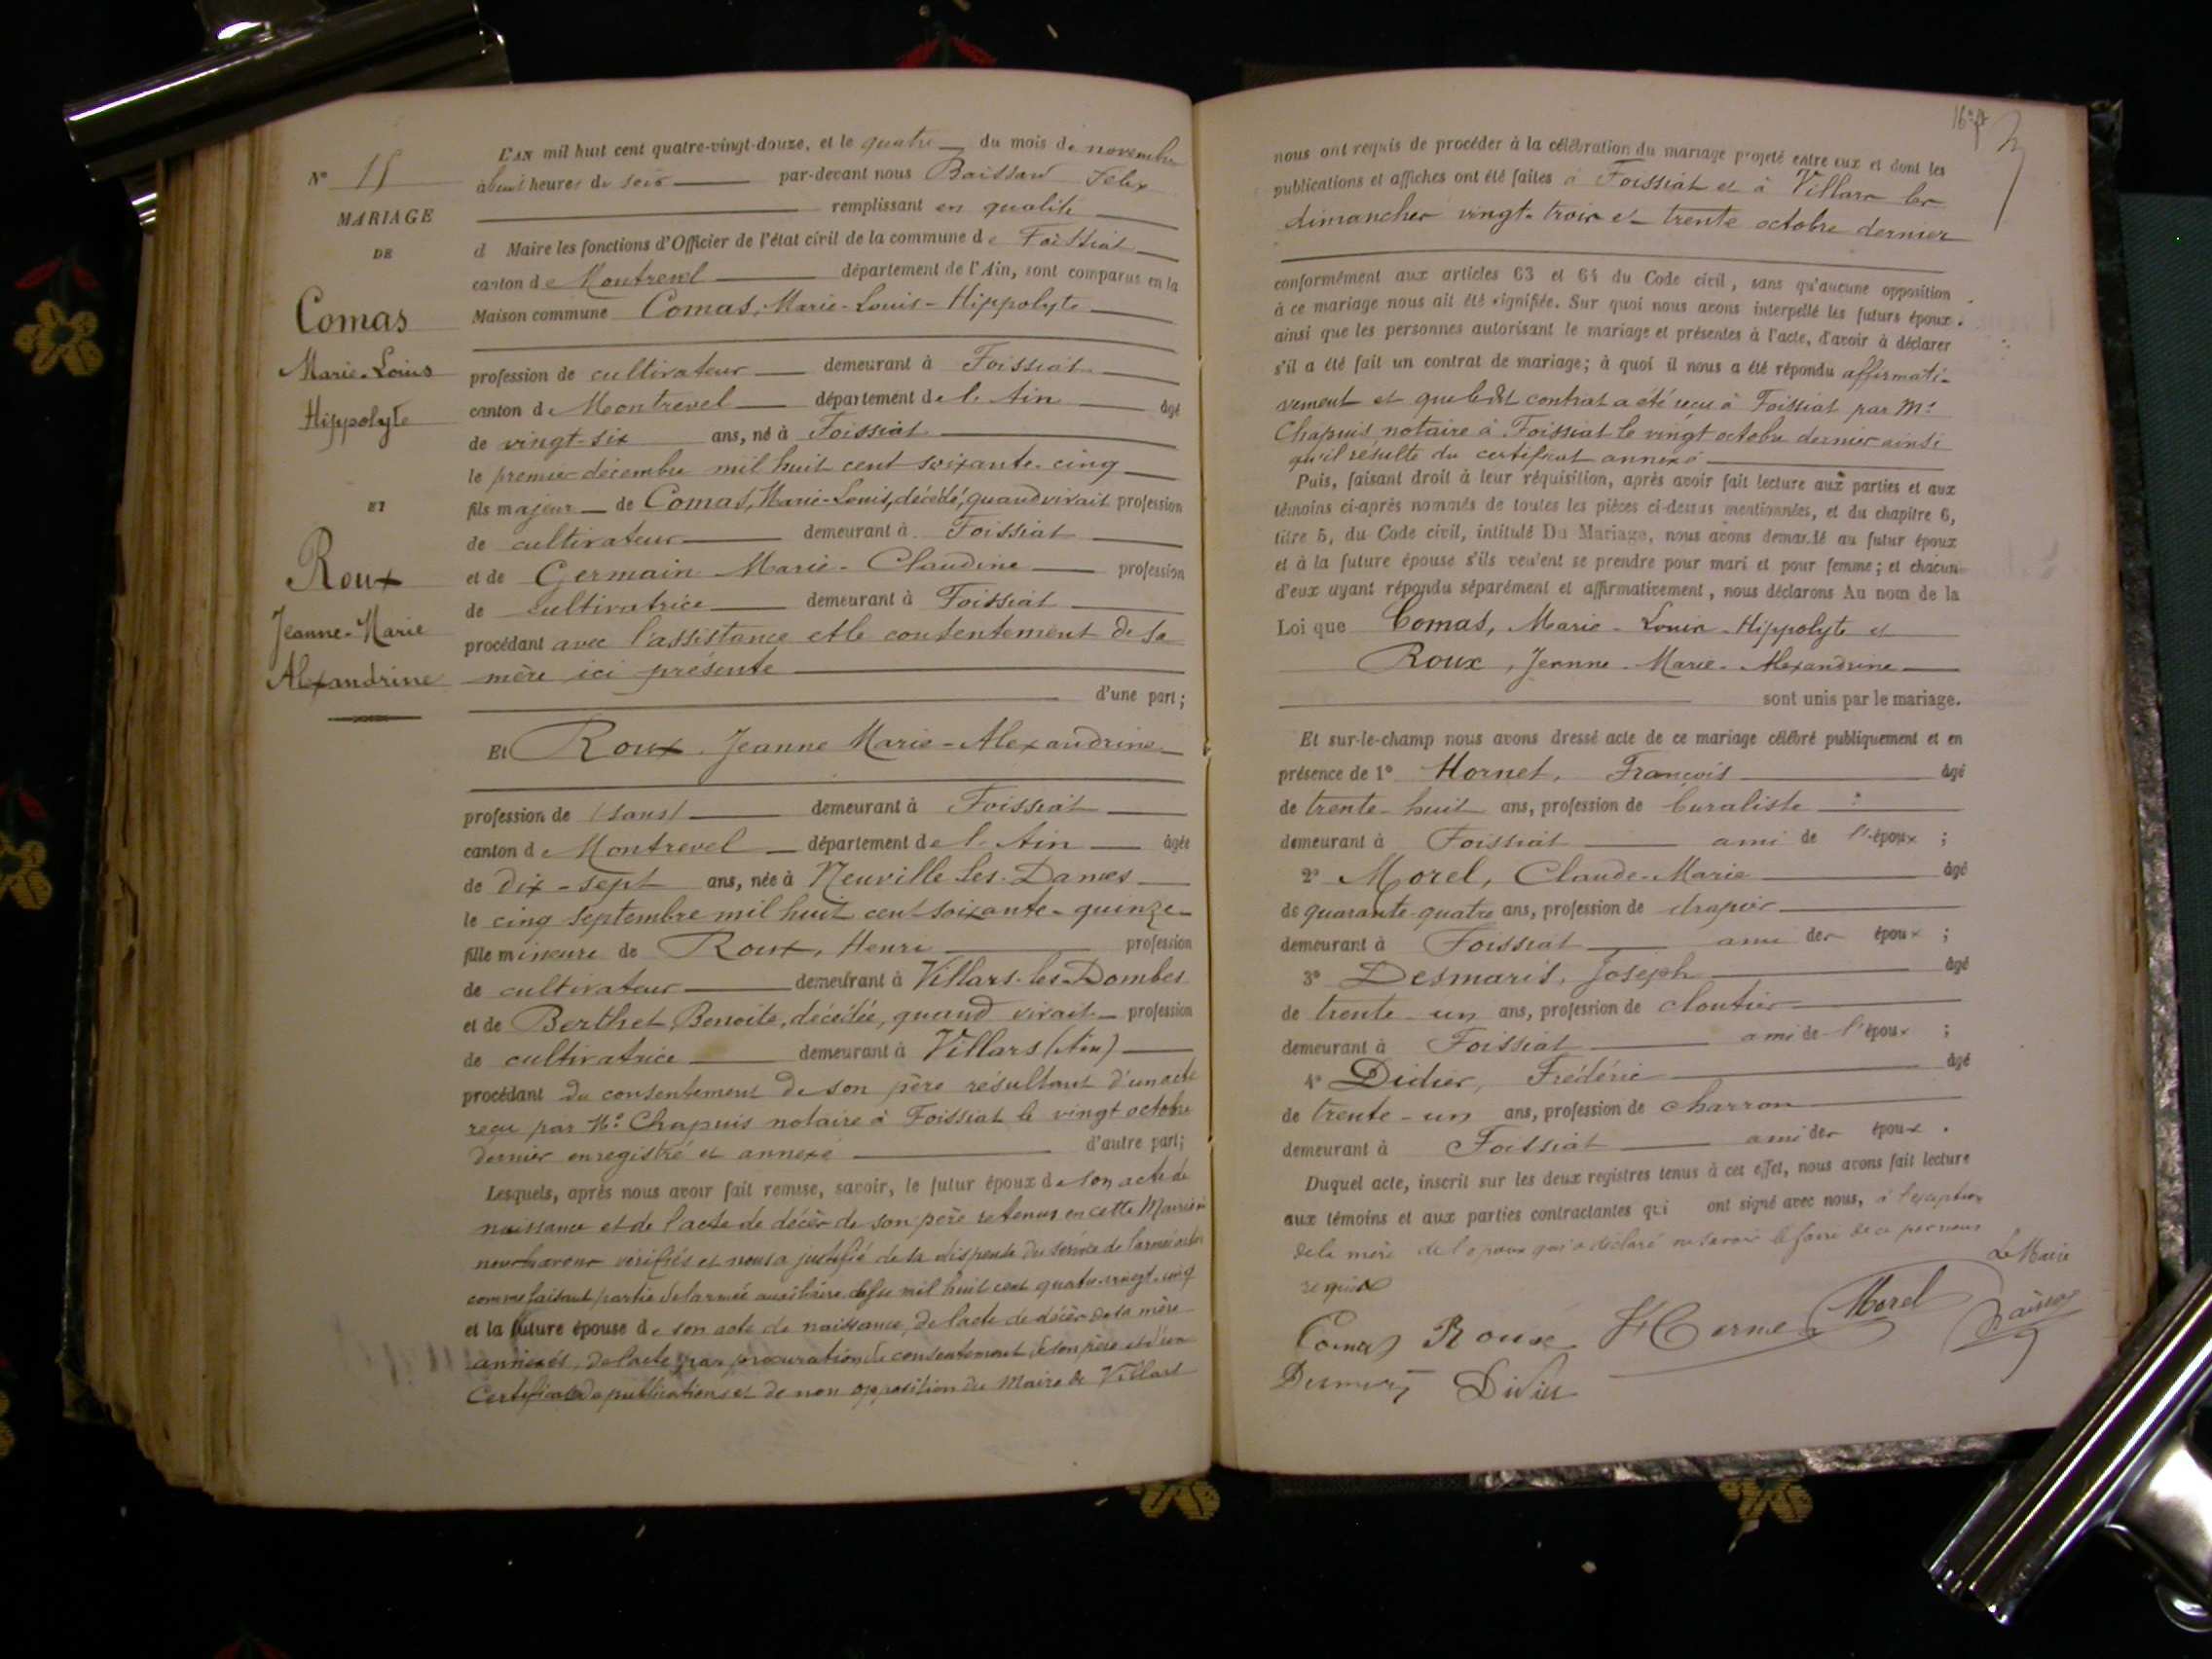 N° 15
MARIAGE
DE
Comas
Marie-Louis
Hippolyte
ET
Roux
Jeanne-Marie
Alexandrine
L'AN mil huit cent quatre-vingt-douze, et le quatre du mois de novembre
à huit heures du soir par-devant nous Baissard Félix
remplissant en qualité
d Maire les fonctions d'Officier de l'état civil de la commune de Foissiat
canton de Montrevel département de l'Ain, sont comparus en la
Maison commune Comas, Marie-Louis-Hippolyte
profession de cultivateur demeurant à Foissiat
canton de Montrevel département de l'Ain âgé
de vingt-six ans, né à Foissiat
le premier décembre mil huit cent soixante-cinq
fils majeur de Comas, Marie-Louis, décédé, quand vivait profession
de cultivateur demeurant à Foissiat
et de Germain Marie-Claudine profession
de cultivatrice demeurant à Foissiat
procédant avec l'assistance et le consentement de sa
mère ici présente
d'une part;
Et Roux Jeanne Marie-Alexandrine
profession de (sans) demeurant à Foissiat
canton de Montrevel département de l'Ain âgée
de dix-sept ans, née à Neuville-les-Dames
le cinq septembre mil huit cent soixante-quinze
fille mineure de Roux, Henri profession
de cultivateur demeurant à Villars-les-Dombes
et de Berthet, Benoite, décédée, quand vivait profession
de cultivatrice demeurant à Villars (Ain)
procédant du consentement de son père résultant d'un acte
reçu par Me Chapuis notaire à Foissiat le vingt octobre
dernier enregistré et annexé d'autre part;
Lesquels, après nous avoir fait remise, savoir, le futur époux de son acte de
naissance et de l'acte de décès de son père retenus en cette Mairie
nous avons vérifiés et nous a justifié de la dispense du service de l'armée
comme faisant partie de l'armée auxiliaire classe mil huit cent quatre-vingt-cinq
et la future épouse de son acte de naissance, de l'acte de décès de sa mère
annexés, de l'acte par procuration de consentement de son père et d'un
certificat de publications et de non opposition du Maire de Villars
nous ont requis de procéder à la célébration du mariage projeté entre eux et dont les
publications et affiches ont été faites à Foissiat et à Villars les
dimanches vingt-trois et trente octobre dernier
conformément aux articles 63 et 64 du Code civil, sans qu'aucune opposition
à ce mariage nous ait été signifiée. Sur quoi nous avons interpellé les futurs époux,
ainsi que les personnes autorisant le mariage et présentes à l'acte, d'avoir à déclarer
s'il a été fait un contrat de mariage; à quoi il nous a été répondu affirmati-
vement et que ledit contrat a été reçu à Foissiat par Me
Chapuis notaire à Foissiat le vingt octobre dernier ainsi
qu'il résulte du certificat annexé
Puis, faisant droit à leur réquisition, après avoir fait lecture aux parties et aux
témoins ci-après nommés de toutes les pièces ci-dessus mentionnées, et du chapitre 6,
titre 5, du Code civil, intitulé Du Mariage, nous avons demandé au futur époux
et à la future épouse s'ils veulent se prendre pour mari et pour femme; et chacun
d'eux ayant répondu séparément et affirmativement, nous déclarons Au nom de la
Loi que Comas, Marie-Louis-Hippolyte et
Roux, Jeanne-Marie-Alexandrine
sont unis par le mariage.
Et sur-le-champ nous avons dressé acte de ce mariage célébré publiquement et en
présence de 1° Hornet, François âgé
de trente-huit ans, profession de buraliste
demeurant à Foissiat ami de l'époux;
2° Morel, Claude-Marie âgé
de quarante-quatre ans, profession de drapier
demeurant à Foissiat ami des époux;
3° Desmaris, Joseph âgé
de trente-un ans, profession de cloutier
demeurant à Foissiat ami de l'époux;
4° Didier, Frédéric âgé
de trente-un ans, profession de charron
demeurant à Foissiat ami des époux.
Duquel acte, inscrit sur les deux registres tenus à cet effet, nous avons fait lecture
aux témoins et aux parties contractantes qui ont signé avec nous, à l'exception
de la mère de l'époux qui a déclaré ne savoir le faire de ce par nous
requise
Le Maire
Comas Roux Morel
Desmaris Didier